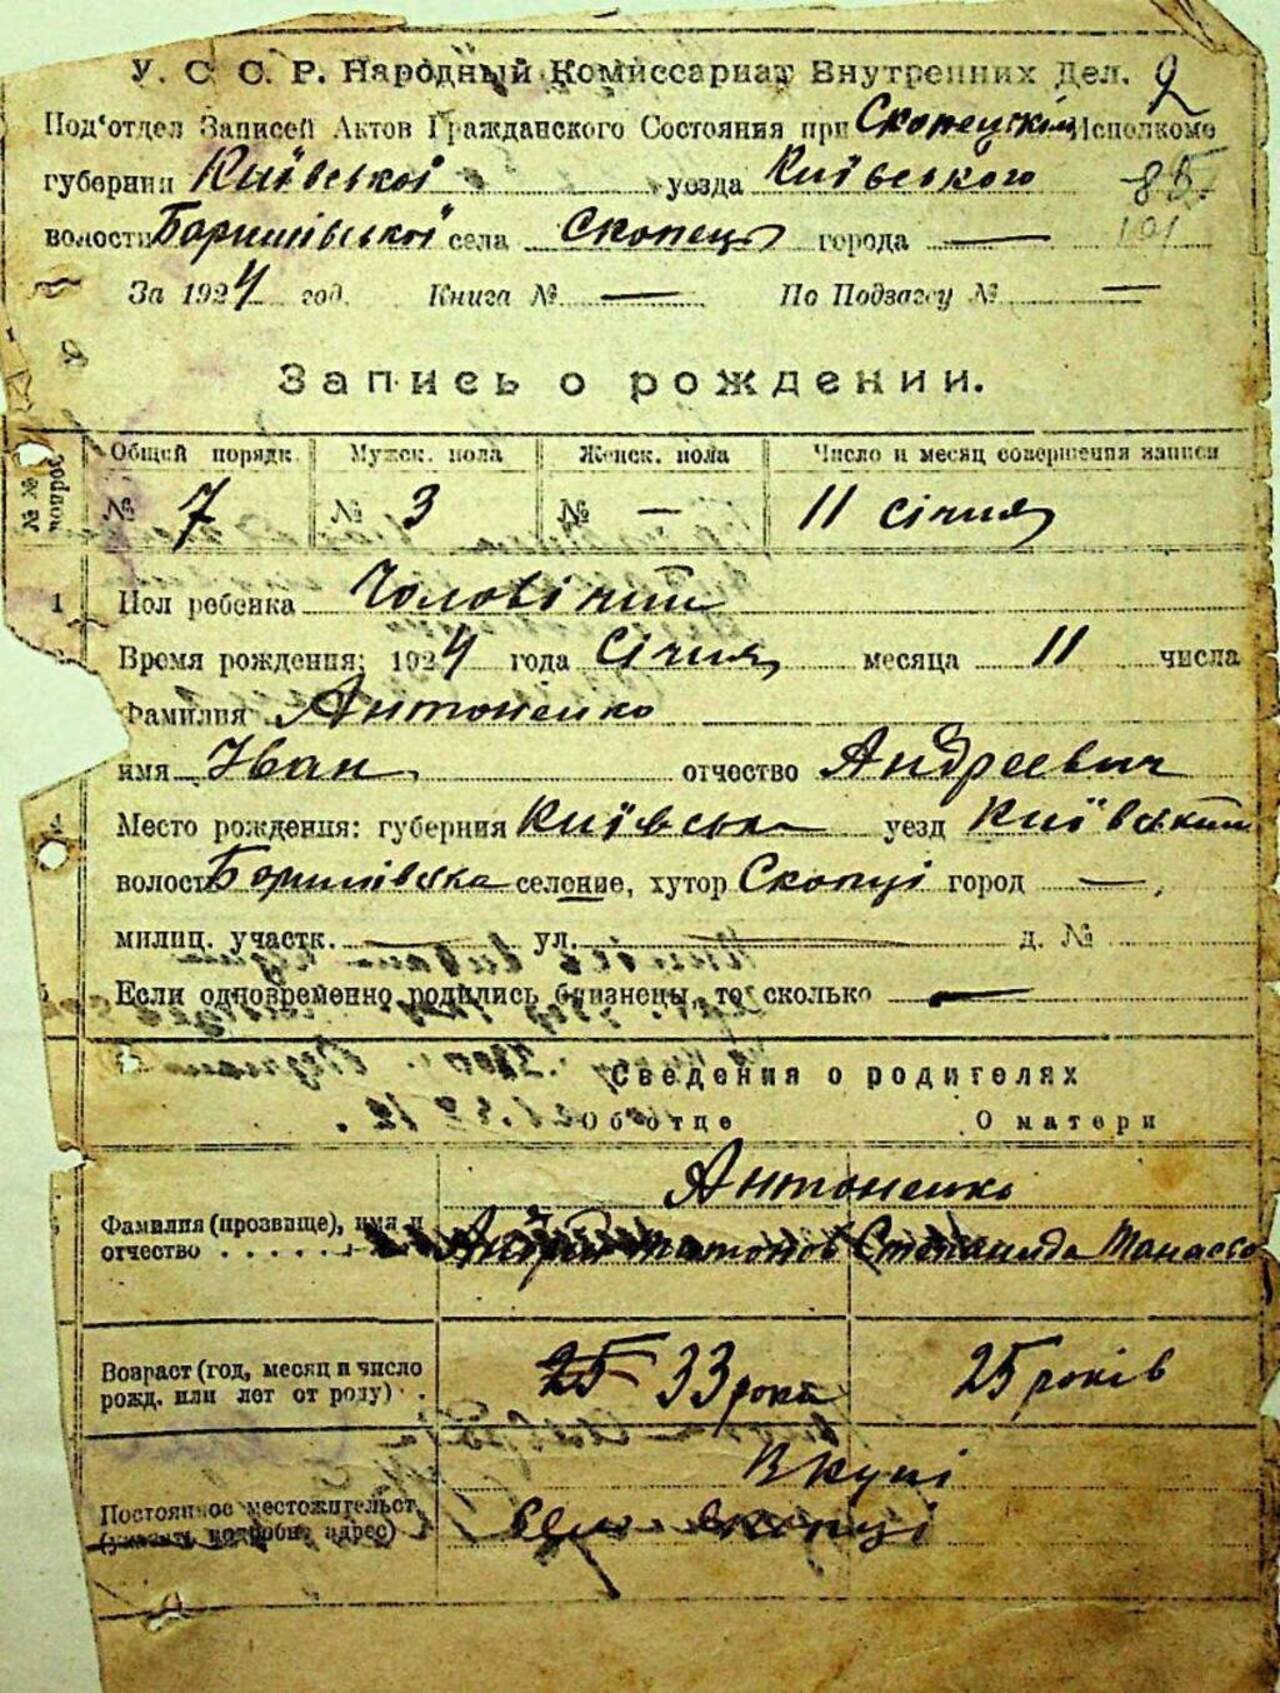 У. С. С. Р. Народный Комиссариат Внутренних Дел. 2
Под'отдел Записей Актов Гражданского Состояния при Скопецкім Исполкоме
губернии Київської уезда Київського 85
волости Баришівської села Скопец города — 101
За 1924 год. Книга № — По Подзагсу № —
Запись о рождении.
№ № вопрос
Общей порядк. Мужск. пола Женск. пола Число и месяц совершения записи
№ 7 № 3 № — 11 січня
1 Пол ребенка Чоловічий
Время рождения: 1924 года Січня месяца 11 числа
Фамилия Антоненко
имя Іван отчество Андреевич
Место рождения: губерния Київська уезд Київський
волость Баришівська селение, хутор Скопці город —,
милиц. участк. — ул. — д. №
Если одновременно родились близнецы, то сколько —
Сведения о родителях
Об отце О матери
Антоненко
Фамилия (прозвище), имя и
отчество Андрій Степанида
Возраст (год, месяц и число
рожд. или лет от роду) 25 33 роки 25 років
Вкупі
Постоянное местожительст.
(указать подробн. адрес) село Скопці